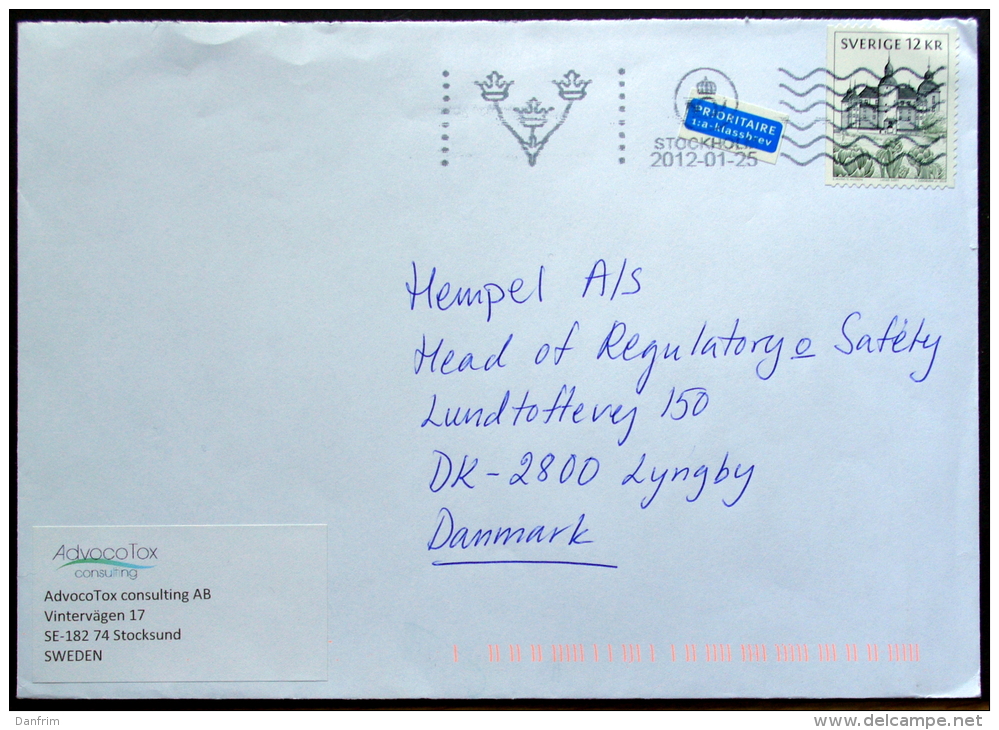 SVERIGE 12 KR
PRIORITAIRE
1:a-klassbrev
STOCKHOLM
2012-01-25
Hempel A/s
Head of Regulatory o Saféty
Lundtoftevej 150
DK-2800 Lyngby
Danmark
AdvocoTox
consulting
AdvocoTox consulting AB
Vintervägen 17
SE-182 74 Stocksund
SWEDEN
Danfrim
www.delcampe.net